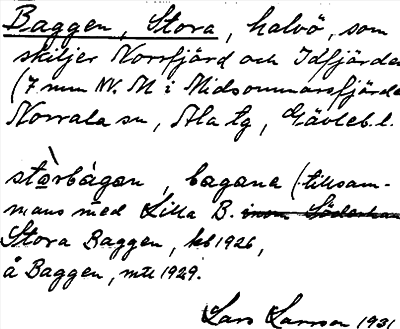 Baggen, Stora, halvö, som
skiljer Norrfjärd och Idfjärde
(7 mm N. M i Midsommarsfjärde
Norrala sn, Ala tg, Gävleb. l.
stòrbágan, bagana (tillsam-
mans med Lilla B. inom Söderham
Stora Baggen, kb 1926,
å Baggen, mtl 1929.
Lars Larsson 1931